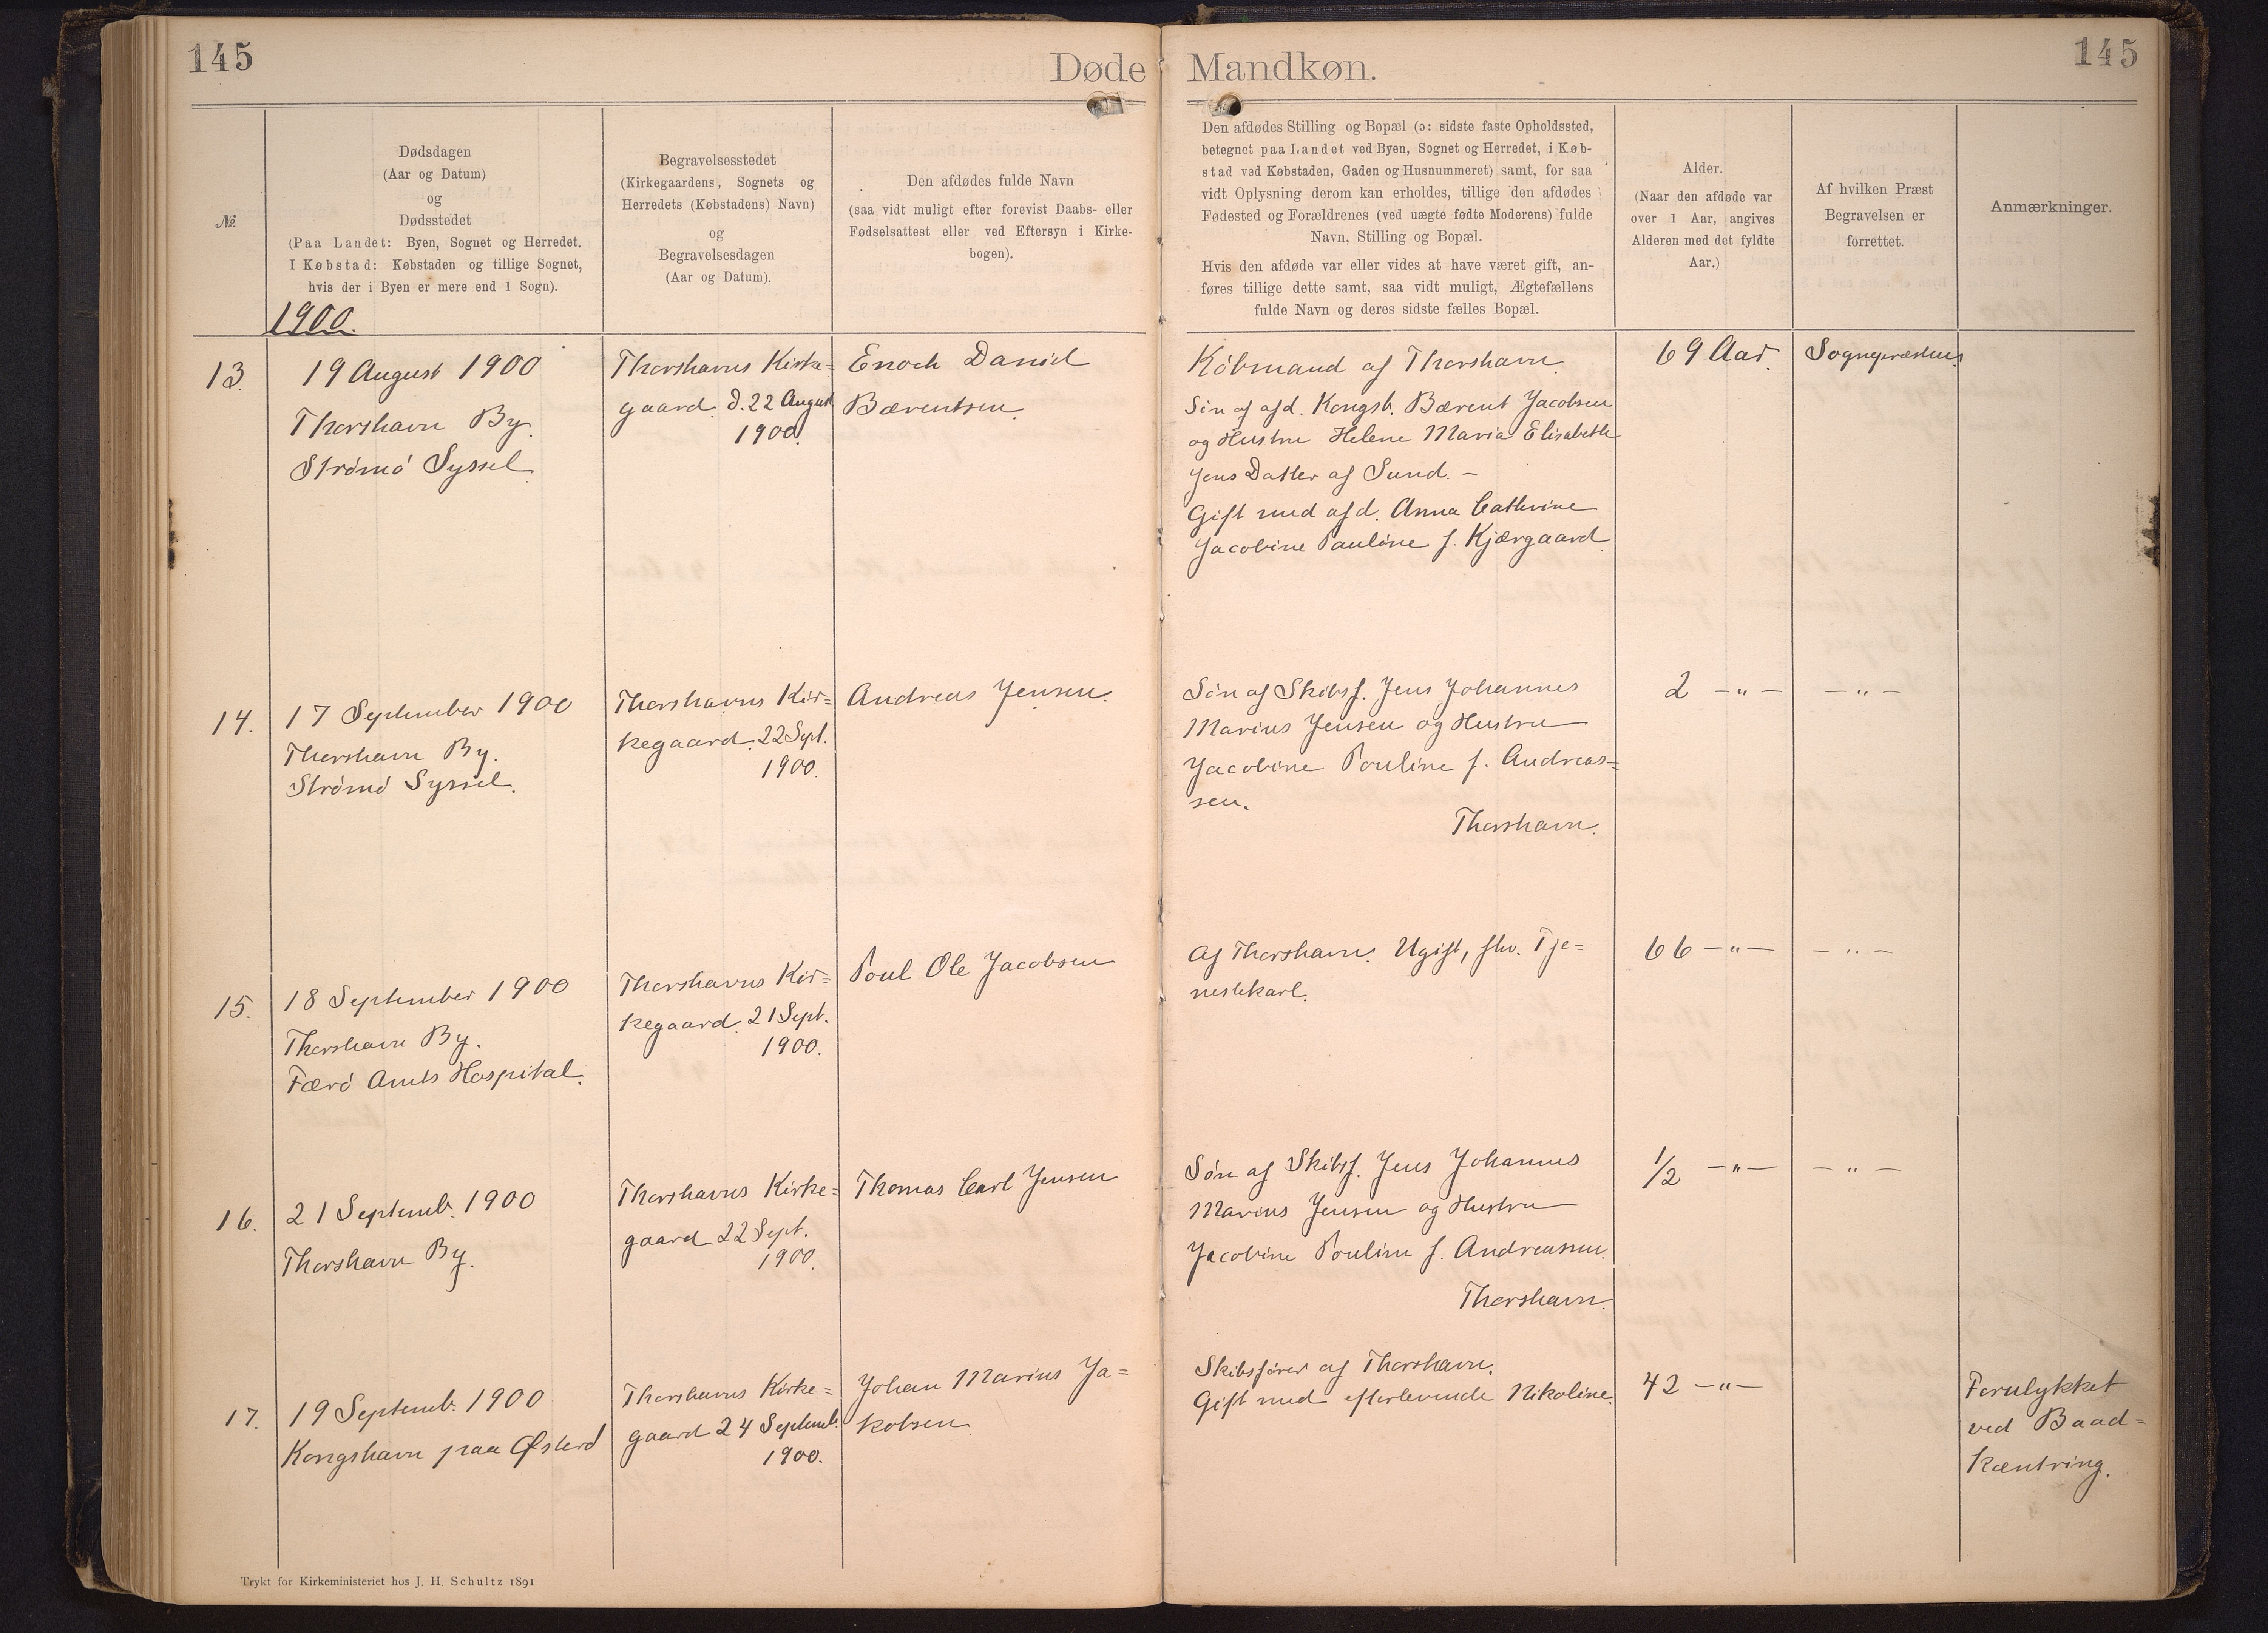 145
Døde
Mandkøn.
145
№
Dødsdagen
(Aar og Datum)
og
Dødsstedet
(Paa Landet: Byen, Sognet og Herredet.
I Købstad: Købstaden og tillige Sognet,
hvis der i Byen er mere end 1 Sogn).
1900.
Begravelsesstedet
(Kirkegaardens, Sognets og
Herredets (Købstadens) Navn)
og
Begravelsesdagen
(Aar og Datum).
Den afdødes fulde Navn
(saa vidt muligt efter forevist Daabs- eller
Fødselsattest eller ved Eftersyn i Kirke-
bogen).
Den afdødes Stilling og Bopæl (ɔ: sidste faste Opholdssted,
betegnet paa Landet ved Byen, Sognet og Herredet, i Køb-
stad ved Købstaden, Gaden og Husnummeret) samt, for saa
vidt Oplysning derom kan erholdes, tillige den afdødes
Fødested og Forældrenes (ved uægte fødte Moderens) fulde
Navn, Stilling og Bopæl.
Hvis den afdøde var eller vides at have været gift, an-
føres tillige dette samt, saa vidt muligt, Ægtefællens
fulde Navn og deres sidste fælles Bopæl.
Alder.
(Naar den afdøde var
over 1 Aar, angives
Alderen med det fyldte
Aar.)
Af hvilken Præst
Begravelsen er
forrettet.
Anmærkninger.
13.
19 August 1900
Thorshavn By.
Strømø Syssel.
Thorshavns Kirke=
gaard. d. 22 August
1900.
Enoch Daniel
Bærentsen.
Købmand af Thorshavn.
Søn af afd. Kongsb. Bærent Jacobsen
og Hustru Helene Maria Elisabeth
Jens Datter af Sund. –
Gift med afd. Anna Cathrine
Jacobine Pauline f. Kjærgaard.
69 Aar.
Sognepræsten
14.
17 September 1900
Thorshavn By.
Strømø Syssel.
Thorshavns Kir=
kegaard. 22 Sept.
1900.
Andreas Jensen.
Søn af Skibsf. Jens Johannes
Marius Jensen og Hustru
Jacobine Pouline f. Andreas=
sen.
Thorshavn.
2 –"–
–"–
15.
18 September 1900
Thorshavn By.
Færø Amts Hospital.
Thorshavns Kir=
kegaard. 21 Sept.
1900.
Poul Ole Jacobsen
Af Thorshavn. Ugift, fhv. Tje=
nestekarl.
66 –"–
–"–
16.
21 Septemb. 1900
Thorshavn By.
Thorshavns Kirke=
gaard 22 Sept.
1900.
Thomas Carl Jensen
Søn af Skibsf. Jens Johannes
Marius Jensen og Hustru
Jacobine Pouline f. Andreassen.
Thorshavn.
1/2 –"–
–"–
17.
19 Septemb. 1900
Kongshavn paa Østerø
Thorshavns Kirke=
gaard 24 Septemb.
1900.
Johan Marius Ja=
kobsen
Skibsfører af Thorshavn.
Gift med efterlevende Nikoline.
42 –"–
Forulykket
ved Baad=
kæntring.
Trykt for Kirkeministeriet hos J. H. Schultz 1891